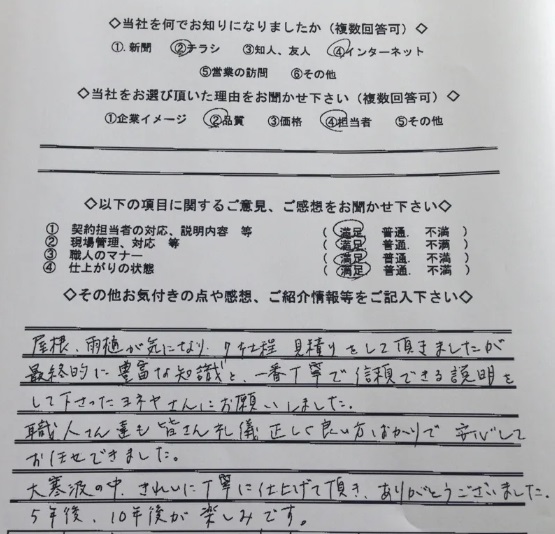 ◇当社を何でお知りになりましたか（複数回答可）◇
①.新聞 ②チラシ ③知人、友人 ④インターネット
⑤営業の訪問 ⑥その他
◇当社をお選び頂いた理由をお聞かせ下さい（複数回答可）◇
①企業イメージ ②品質 ③価格 ④担当者 ⑤その他
◇以下の項目に関するご意見、ご感想をお聞かせ下さい◇
① 契約担当者の対応、説明内容 等 （ 満足 普通. 不満 ）
② 現場管理、対応 等 （ 満足 普通. 不満 ）
③ 職人のマナー （ 満足 普通. 不満 ）
④ 仕上がりの状態 （ 満足 普通. 不満 ）
◇その他お気付きの点や感想、ご紹介情報等をご記入下さい◇
屋根、雨樋が気になり、7社程 見積りをして頂きましたが
最終的に豊富な知識と、一番丁寧で信頼できる説明を
して下さったヨネヤさんにお願いしました.
職人さん達も皆さん礼儀正しく良い方ばかりで 安心して
お任せできました。
大寒波の中、きれいに丁寧に仕上げて頂き、ありがとうございました.
5年後、10年後が楽しみです。